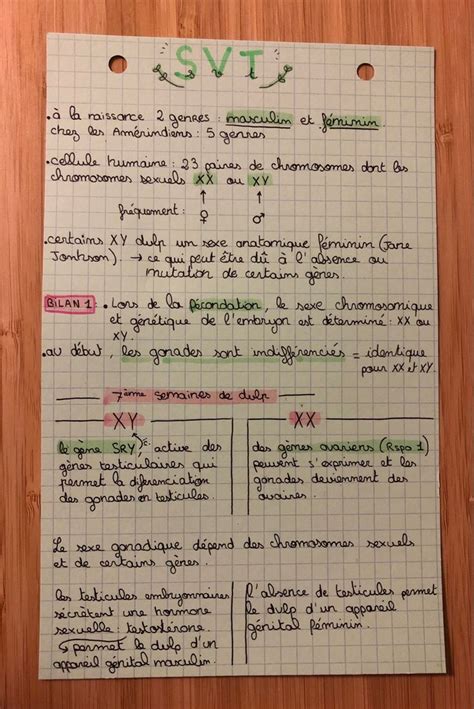 SVT
• à la naissance 2 genres : masculin et féminin
chez les Amérindiens : 5 genres
• cellule humaine : 23 paires de chromosomes dont les
chromosomes sexuels XX ou XY
↑ ↑
fréquement : ♀ ♂
• certains XY dvlp un sexe anatomique féminin (Jane
Jonhson). → ce qui peut être dû à l'absence ou
mutation de certains gènes.
BILAN 1 : • Lors de la fécondation, le sexe chromosomique
et génétique de l'embryon est déterminé : XX ou
XY.
• au début, les gonades sont indifférenciés = identique
pour XX et XY.
7ième semaines de dvlp
XY
le gène SRY, active des
gènes testiculaires qui
permet la diferenciation
des gonades en testicules.
XX
des gènes ovariens (Rspo 1)
peuvent s'exprimer et les
gonades deviennent des
ovaires.
Le sexe gonadique dépend des chromosomes sexuels
et de certains gènes.
les testicules embryonnaires
sécrètent une hormone
sexuelle : testostérone.
↳ permet le dvlp d'un
appareil génital masculin.
L'absence de testicules permet
le dvlp d'un appareil
génital féminin.